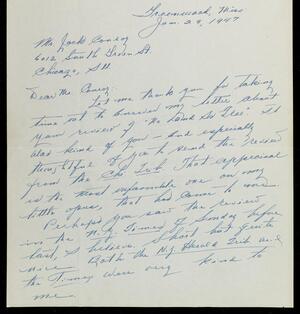 Greenwood, Miss
Jan. 29, 1947
Mr. Jack Conroy
6012 South Green St.
Chicago, Ill.
Dear Mr. Conroy:
Let me thank you for taking
time out to answer my letter about
your review of "No Land Is Free". It
was kind of you - and especially
thoughtful of you to send the review
from the Chi Trib. That appraisal
is the most favorable one on my
little opus, that has come to me.
Perhaps you saw the review
in the N.Y. Times of Sunday before
last, I believe. Short but quite
nice. Both the N.Y. Herald Trib and
the Times were very kind to
me.